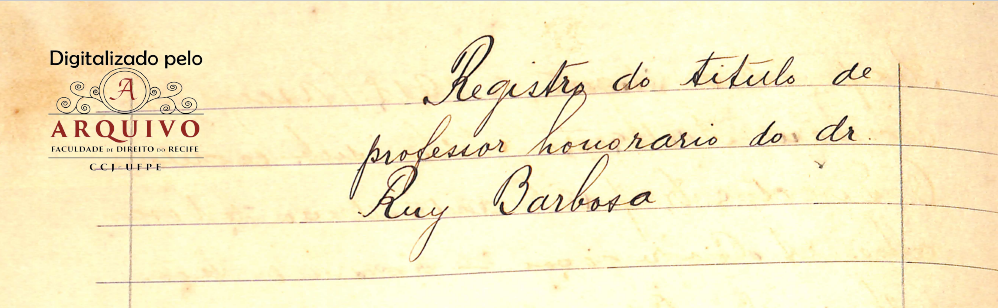 Digitalizado pelo
A
ARQUIVO
FACULDADE DE DIREITO DO RECIFE
CCJ-UFPE
Registro do titulo de
professor honorario do dr.
Ruy Barbosa